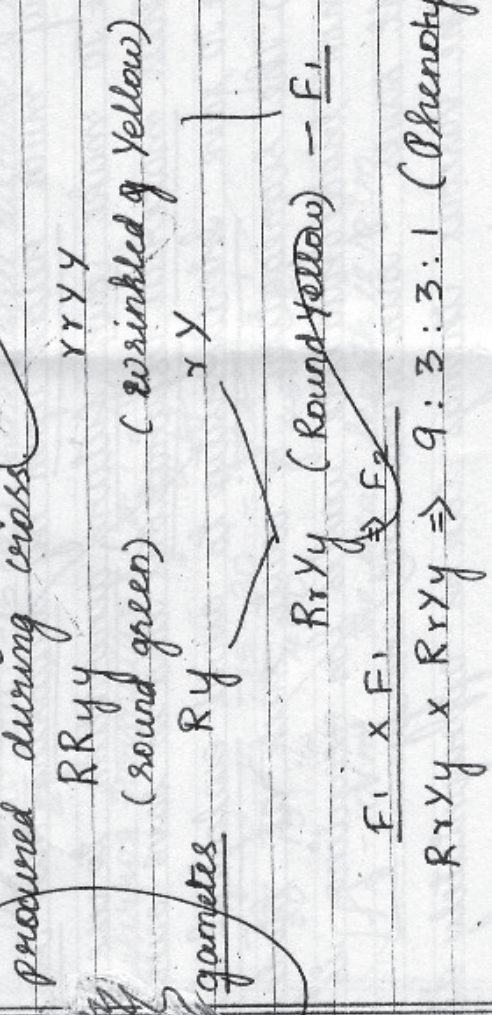 procured during cross
RRyy rrYY
(round green) (wrinkled & Yellow)
gametes Ry rY
RrYy (Round Yellow) — F1
F1 x F1 ⇒ F2
RrYy x RrYy ⇒ 9:3:3:1 (Phenoty